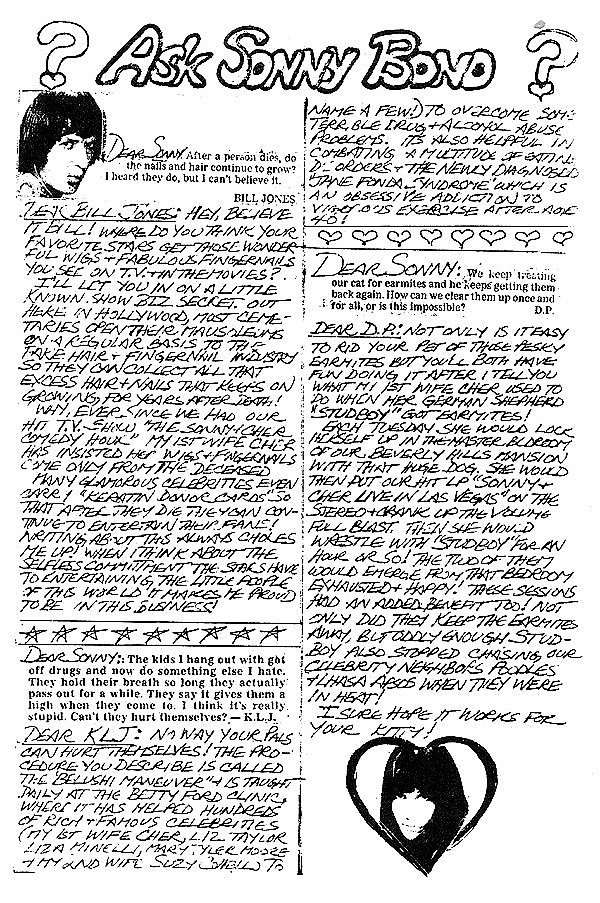 ? Ask Sonny Bono ?
Dear Sonny After a person dies, do
the nails and hair continue to grow?
I heard they do, but I can't believe it.
BILL JONES
Dear Bill Jones: Hey, believe
it Bill! Where do you think your
favorite stars get those wonder-
ful wigs + fabulous fingernails
you see on T.V. + in the movies?
I'll let you in on a little
known show biz secret. Out
here in Hollywood, most ceme-
taries open their mausoleums
on a regular basis to the
fake hair + fingernail industry
so they can collect all that
excess hair + nails that keeps on
growing for years after death!
Why, ever since we had our
hit T.V. show "The Sonny + Cher
Comedy Hour" my 1st wife Cher
has insisted her wigs + fingernails
come only from the deceased
Many glamorous celebrities even
carry "Keratin Donor Cards" so
that after they die they can con-
tinue to entertain their fans!
Writing about this always chokes
me up! When I think about the
selfless committment the stars have
to entertaining the little people
of this world it makes me proud
to be in this business!
Dear Sonny: The kids I hang out with got
off drugs and now do something else I hate.
They hold their breath so long they actually
pass out for a while. They say it gives them a
high when they come to. I think it's really
stupid. Can't they hurt themselves? — K.L.J.
Dear KLJ: No way your pals
can hurt themselves! The pro-
cedure you describe is called
the "Belushi Maneuver" + is taught
daily at the Betty Ford Clinic,
where it has helped hundreds
of rich + famous celebrities
(my 1st wife Cher, Liz Taylor
Liza Minelli, Mary Tyler Moore
+ my 2nd wife Suzy to
name a few) to overcome some
terrible drug + alcohol abuse
problems. It's also helpful in
combating a multitude of eating
disorders + the newly diagnosed
"Jane Fonda Syndrome" which is
an obsessive addiction to
exercise after age
40!
Dear Sonny: We keep treating
our cat for earmites and he keeps getting them
back again. How can we clear them up once and
for all, or is this impossible?
D.P.
Dear D.P.: Not only is it easy
to rid your pet of those pesky
earmites but you'll both have
fun doing it after I tell you
what my 1st wife Cher used to
do when her German Shepherd
"Studboy" got earmites!
Each Tuesday she would lock
herself up in the master bedroom
of our Beverly Hills mansion
with that huge dog. She would
then put our hit LP "Sonny +
Cher Live in Las Vegas" on the
stereo + crank up the volume
full blast. Then she would
wrestle with "Studboy" for an
hour or so! The two of them
would emerge from that bedroom
exhausted + happy! These sessions
had an added benefit too! Not
only did they keep the earmites
away, but oddly enough Stud-
boy also stopped chasing our
celebrity neighbors poodles
+ Lhasa Apsos when they were
in heat!
I sure hope it works for
your kitty!